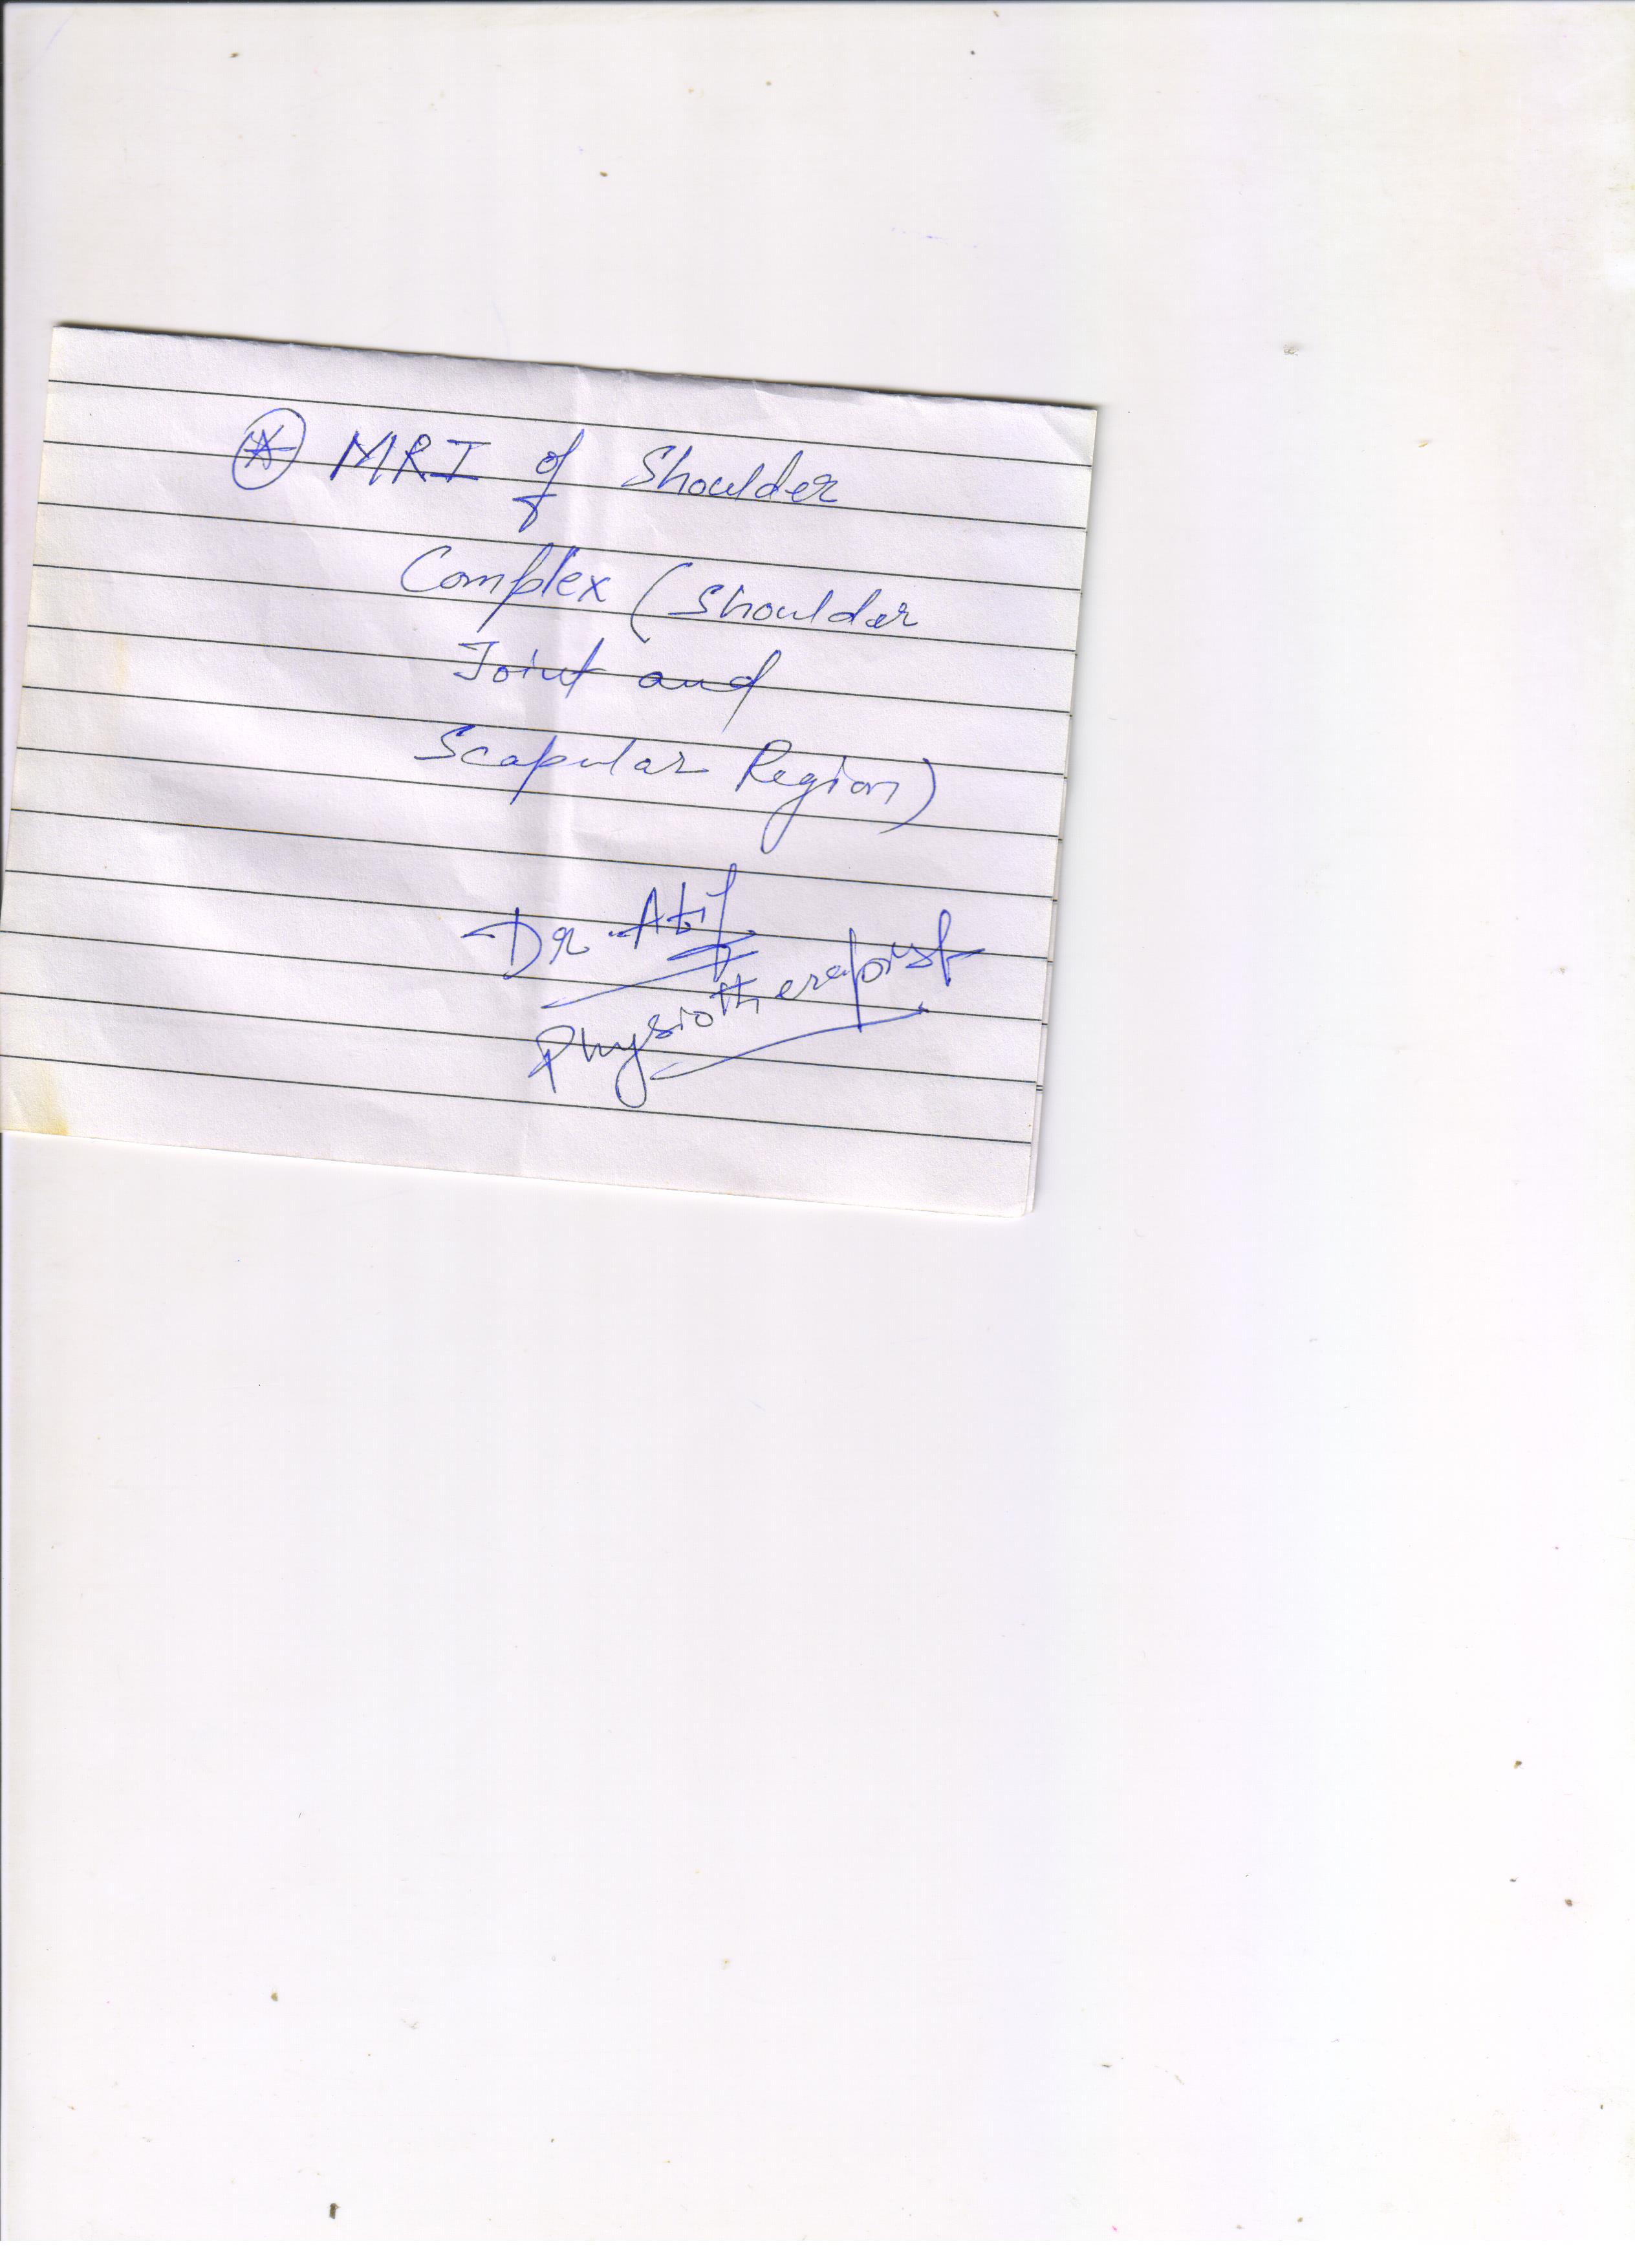 MRI of Shoulder
Complex (Shoulder
Joint and
Scapular Region)
Dr. Atif
Physiotherapist